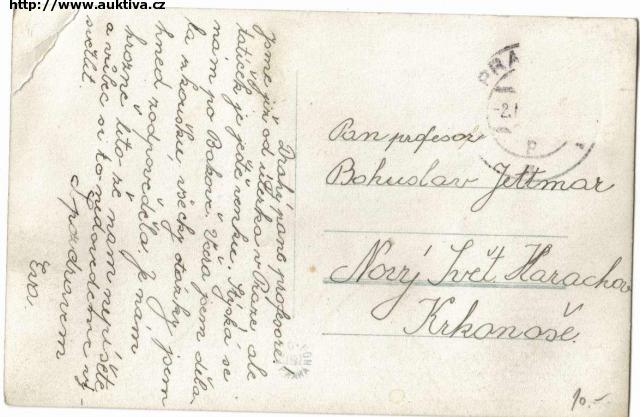 http://www.auktiva.cz
Drahý pane profesore!
jsme již od úterka v Praze, ale
tatíček je ještě venku. Stýská se
nám po Bakově. Včera jsem děla-
la zkoušku, všecky otázky jsem
hned zodpověděla. Je nám
hrozně líto že nám nepíšete
a vůbec si to nedovedeme vy-
světlit.
S pozdravem
Eva.
PRA
-2.
P
Pan profesor
Bohuslav Jettmar
Nový Svět. Harachov
Krkonoše.
10.-